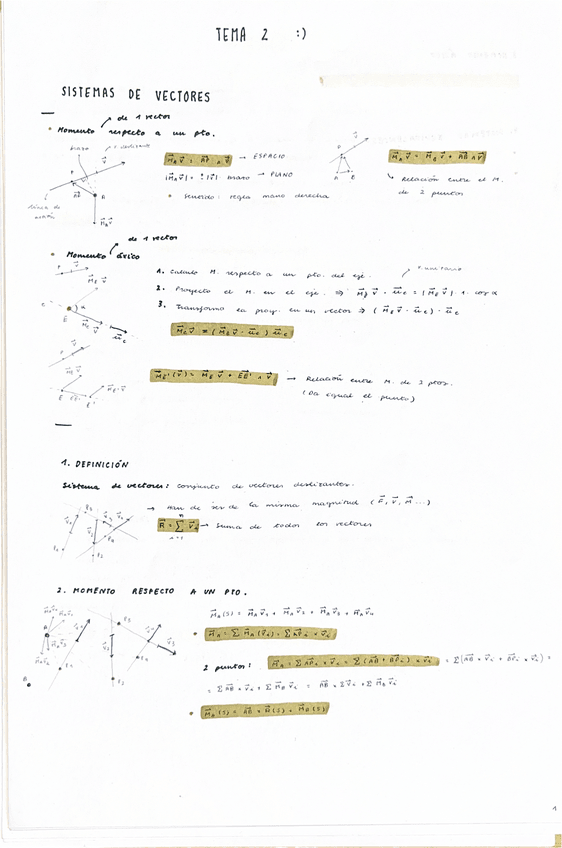 TEMA 2 :)
SISTEMAS DE VECTORES
de 1 vector
• Momento respecto a un pto.
M⃗_A v⃗ = AP⃗ ∧ v⃗ → ESPACIO
|M⃗_A v⃗| = ± |v⃗| · brazo → PLANO
* Sentido: regla mano derecha
M⃗_A v⃗ = M⃗_B v⃗ + AB⃗ ∧ v⃗
↳ Relación entre el M.
de 2 puntos
brazo
v. deslizante
línea de
acción
de 1 vector
• Momento áxico
1. Calculo M. respecto a un pto. del eje.
v. unitario
2. Proyecto el M. en el eje. ⇒ M⃗_E v⃗ · u⃗_c = |M⃗_E v⃗| · 1 · cos α
3. Transformo la proy. en un vector ⇒ (M⃗_E v⃗ · u⃗_c) · u⃗_c
M⃗_c v⃗ = (M⃗_E v⃗ · u⃗_c) u⃗_c
M⃗_E'(v⃗) = M⃗_E v⃗ + EE'⃗ ∧ v⃗ → Relación entre M. de 2 ptos.
(Da igual el punto)
1. DEFINICIÓN
Sistema de vectores: conjunto de vectores deslizantes.
→ Han de ser de la misma magnitud (F⃗, v⃗, M⃗...)
R⃗ = Σ v⃗_i → Suma de todos los vectores
2. MOMENTO RESPECTO A UN PTO.
M⃗_A(S) = M⃗_A v⃗_1 + M⃗_A v⃗_2 + M⃗_A v⃗_3 + M⃗_A v⃗_4
• M⃗_A = Σ M⃗_A (v⃗_i) = Σ AP⃗_i × v⃗_i
2 puntos: M⃗_A = Σ AP⃗_i × v⃗_i = Σ (AB⃗ + BP⃗_i) × v⃗_i = Σ (AB⃗ × v⃗_i + BP⃗_i × v⃗_i) =
= Σ AB⃗ × v⃗_i + Σ M⃗_B v⃗_i = AB⃗ × Σ v⃗_i + Σ M⃗_B v⃗_i
• M⃗_A (S) = AB⃗ × R⃗ (S) + M⃗_B (S)
1